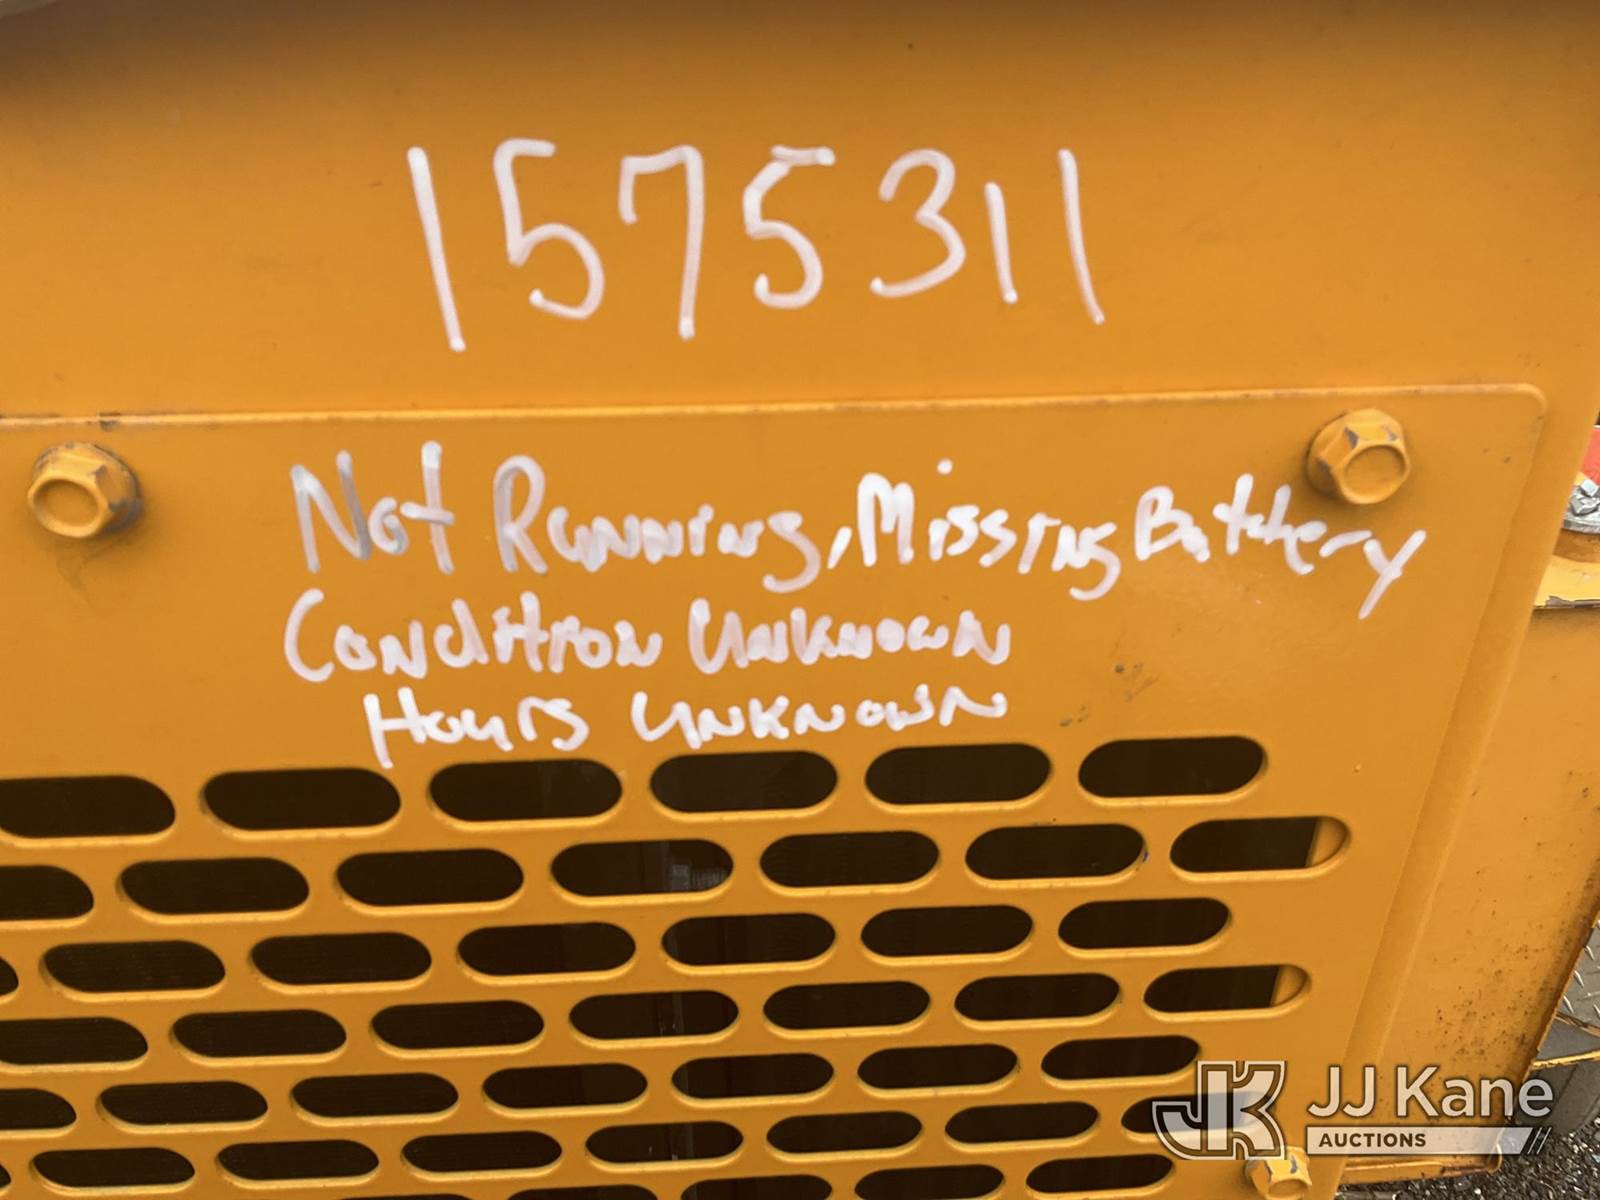 1575311
Not Running, Missing Battery
Condition Unknown
Hours Unknown
JK JJ Kane
AUCTIONS